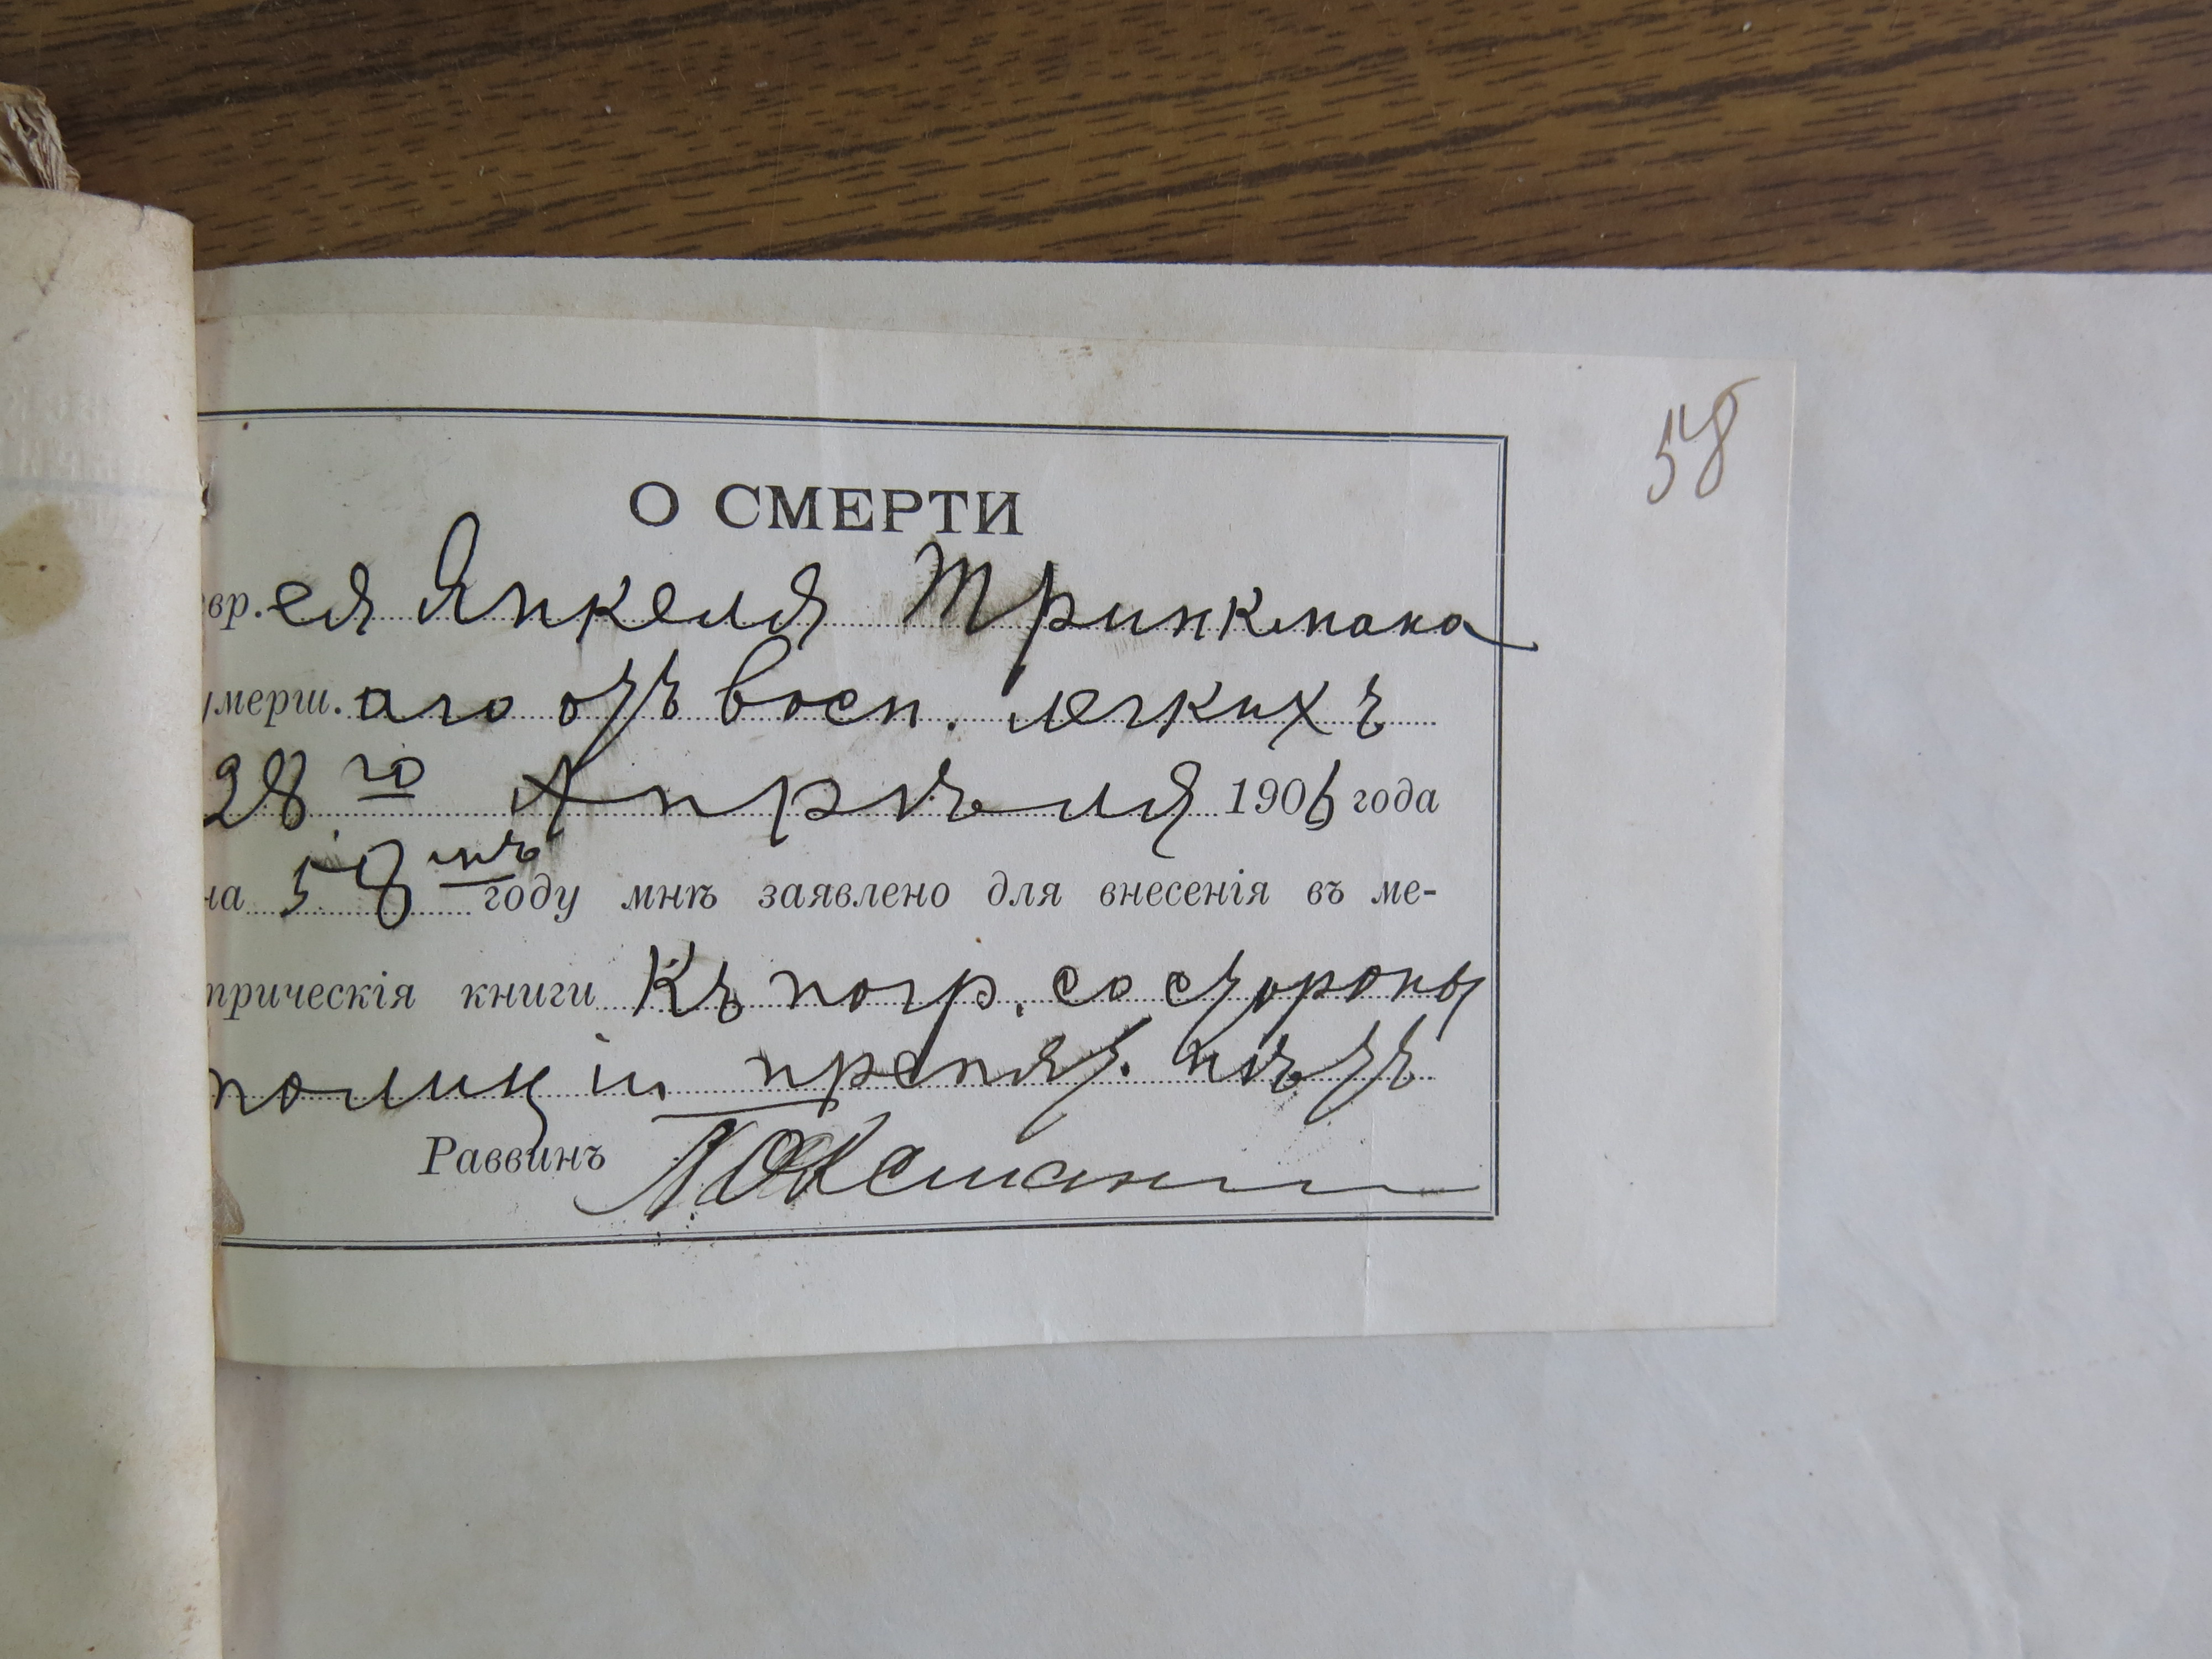 58
О СМЕРТИ
евр.ея Янкеля Тринкмана
умерш.аго отъ восп. легкихъ
28го Апрѣля 1906 года
на 58мъ году мнѣ заявлено для внесенія въ ме-
трическія книги Къ погр. со стороны
полиціи препят. нѣтъ
Раввинъ